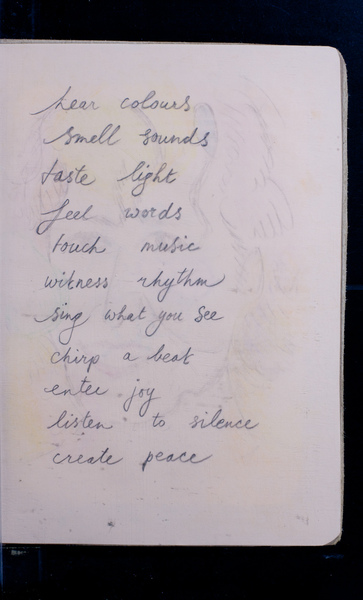 hear colours
smell sounds
taste light
feel words
touch music
witness rhythm
sing what you see
chirp a beat
enter joy
listen to silence
create peace